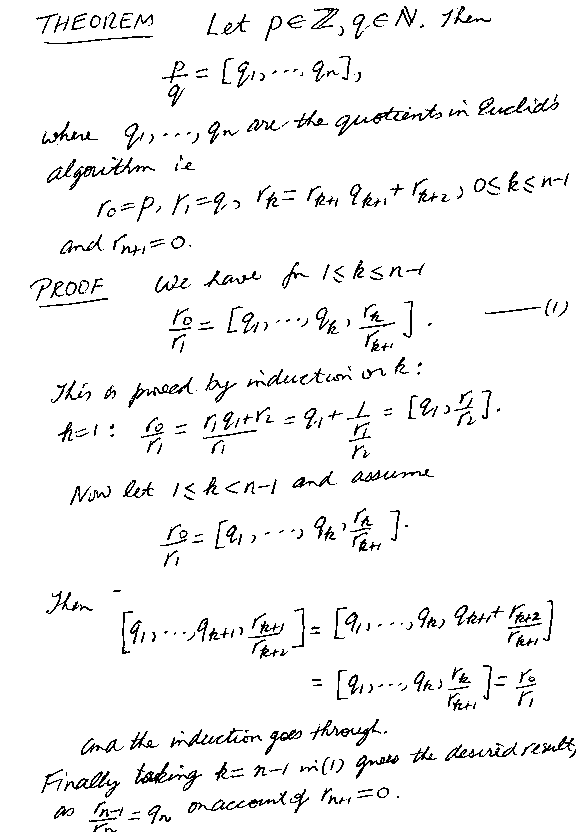 THEOREM Let p∈ℤ, q∈ℕ. Then
p/q = [q₁, ..., qₙ],
where q₁, ..., qₙ are the quotients in Euclid's
algorithm ie
r₀=p, r₁=q, rₖ = rₖ₊₁ qₖ₊₁ + rₖ₊₂, 0≤k≤n-1
and rₙ₊₁=0.
PROOF We have for 1≤k≤n-1
r₀/r₁ = [q₁, ..., qₖ, rₖ/rₖ₊₁]. —(1)
This is proved by induction on k:
k=1: r₀/r₁ = (r₁q₁+r₂)/r₁ = q₁ + 1/(r₁/r₂) = [q₁, r₁/r₂].
Now let 1≤k<n-1 and assume
r₀/r₁ = [q₁, ..., qₖ, rₖ/rₖ₊₁].
Then
[q₁, ..., qₖ₊₁, rₖ₊₁/rₖ₊₂] = [q₁, ..., qₖ, qₖ₊₁ + rₖ₊₂/rₖ₊₁]
= [q₁, ..., qₖ, rₖ/rₖ₊₁] = r₀/r₁
and the induction goes through.
Finally taking k=n-1 in (1) gives the desired result,
as rₙ₋₁/rₙ = qₙ on account of rₙ₊₁=0.